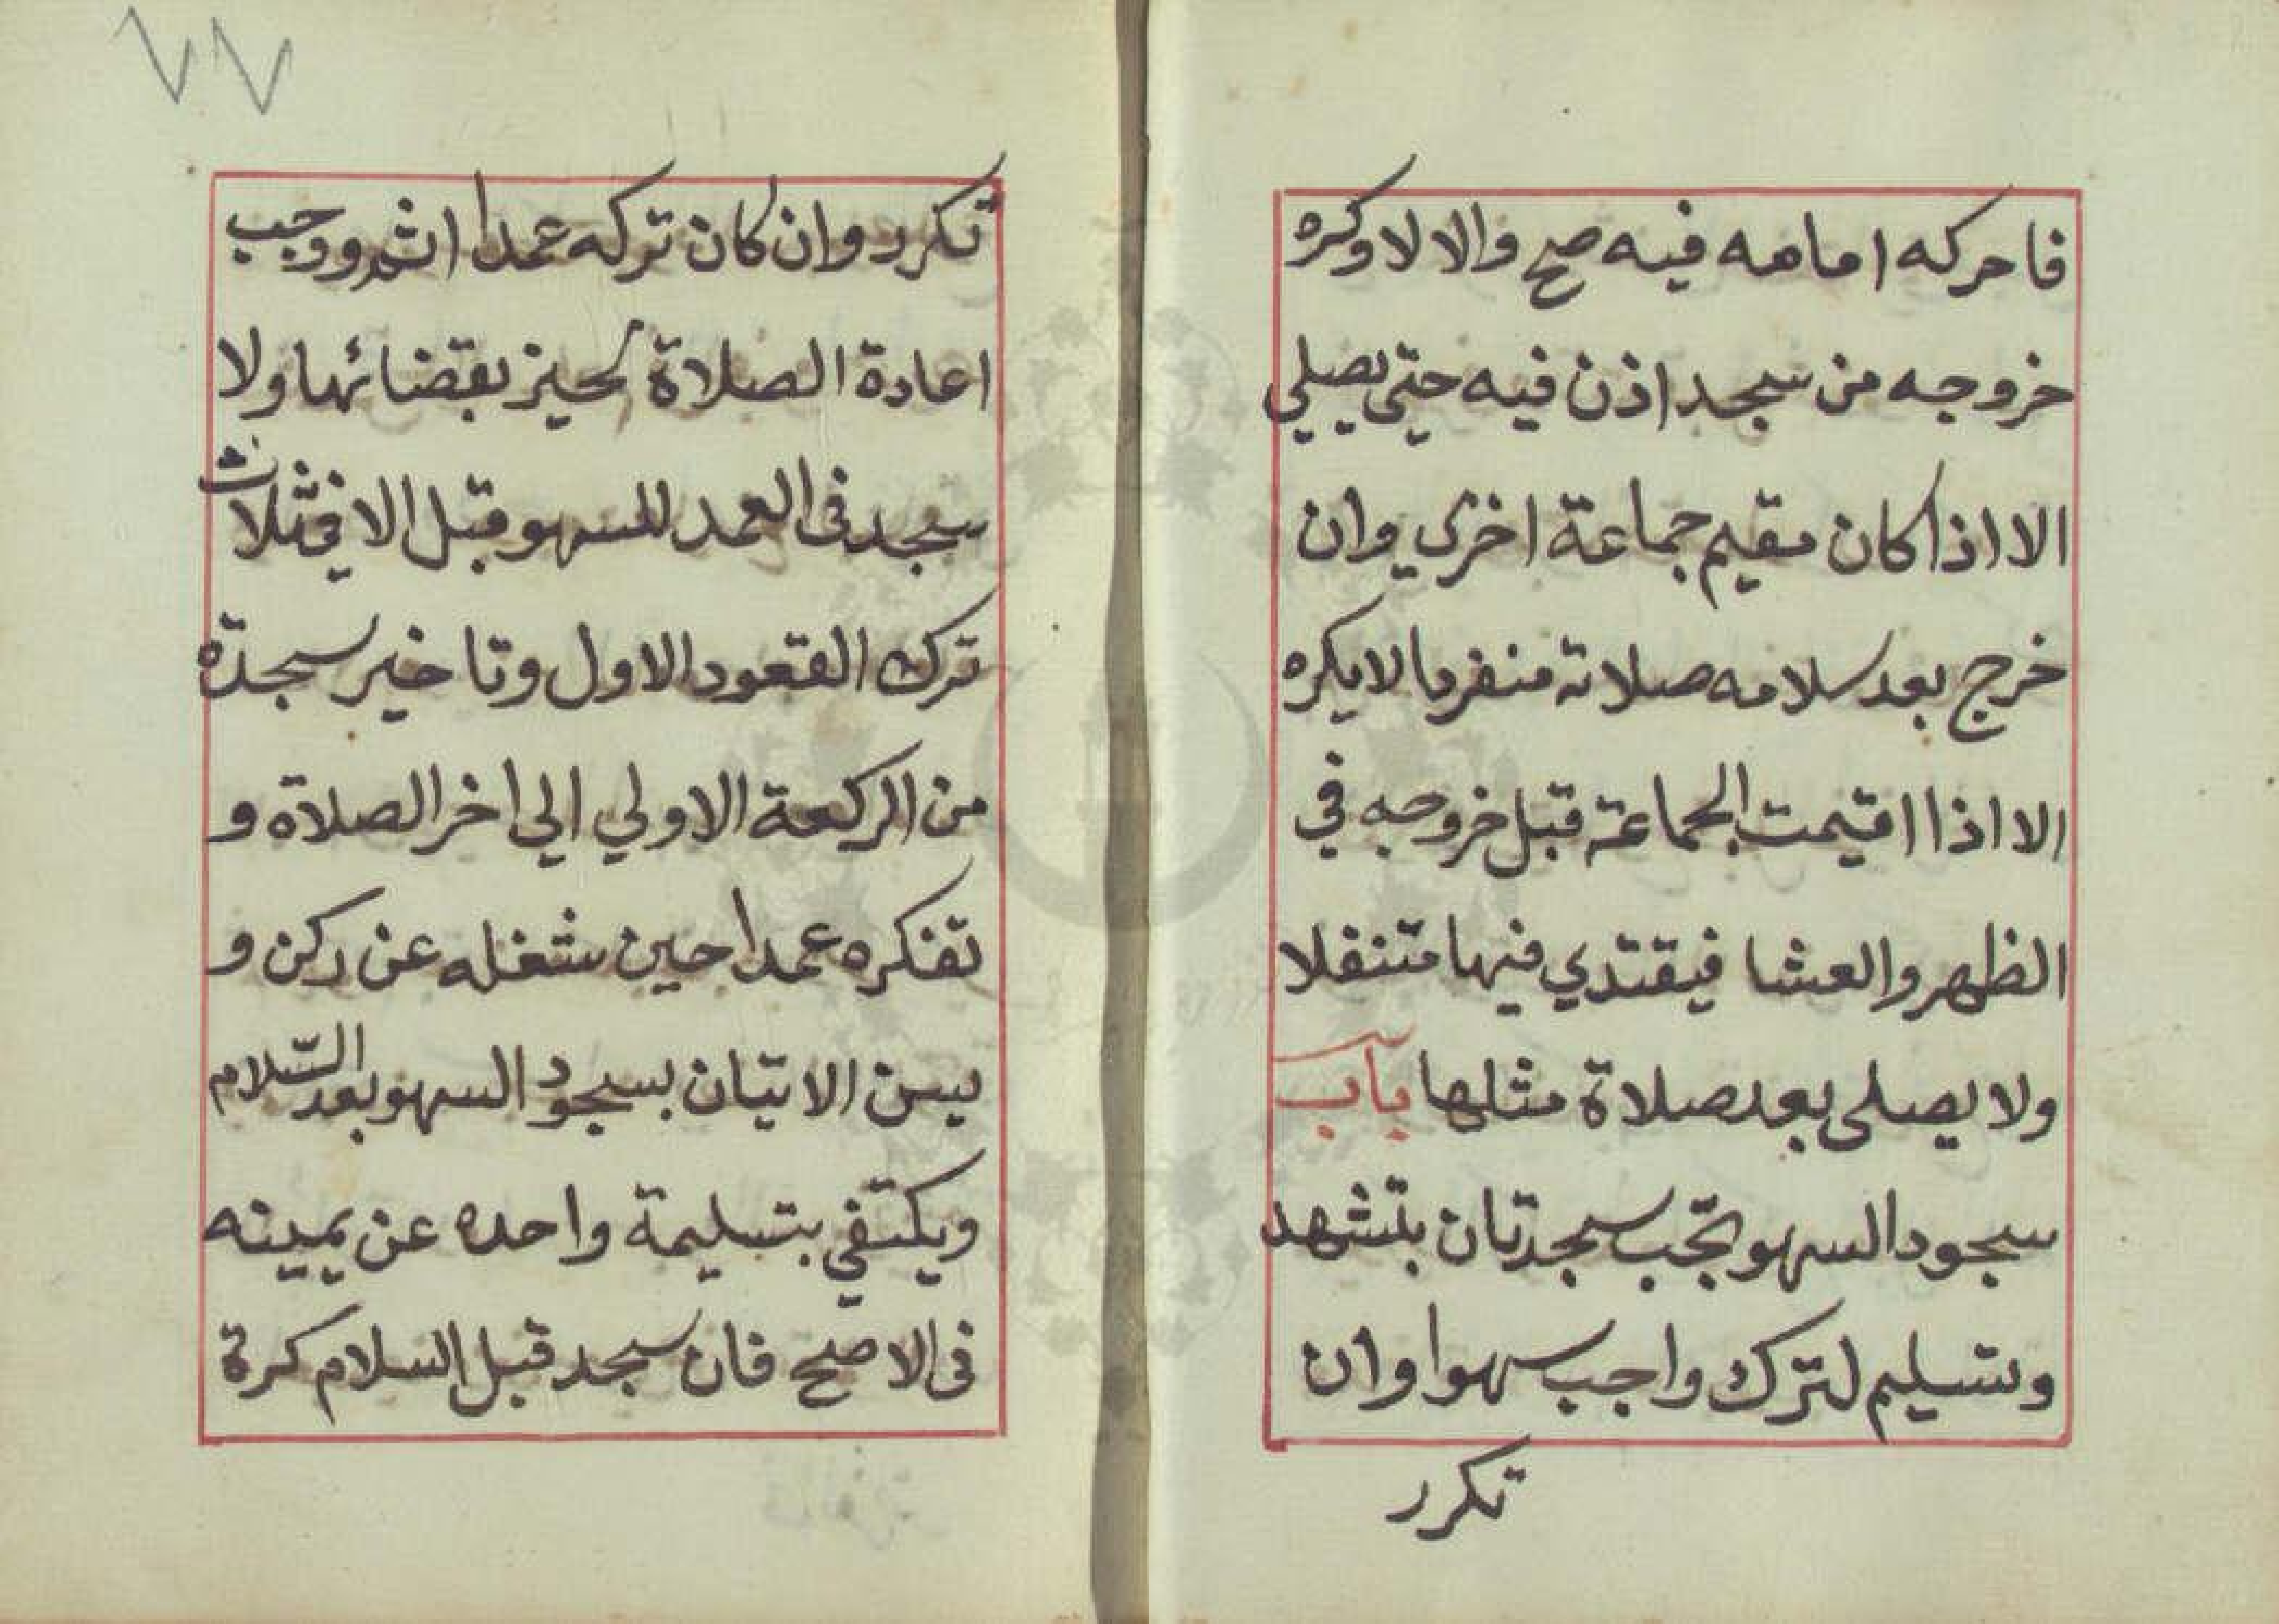 فاحركه امامه فيه صح والا لا وكره
خروجه من سجد اذن فيه حتى يصلي
الا اذا كان مقيم جماعة اخرى وان
خرج بعد سلامه صلاته منفردا لا يكره
الا اذا اقيمت الجماعة قبل خروجه في
الظهر والعشا فيقتدي فيها متنفلا
ولا يصلى بعد صلاة مثلها باب
سجود السهو تجب سجدتان بتشهد
وتسليم لترك واجب سهوا وان
تكرر
٧٧
تكرر وان كان تركه عمدا اثم ووجب
اعادة الصلاة بقضائها ولا
سجد فى العمد للسهو قبل الا في ثلاث
ترك القعود الاول وتاخير سجدة
من الركعة الاولي الي اخر الصلاة و
تفكره عمدا حين شغله عن ركن و
يسن الاتيان بسجود السهو بعد السّلام
ويكتفي بتسليمة واحده عن يمينه
فى الاصح فان سجد قبل السلام كرة